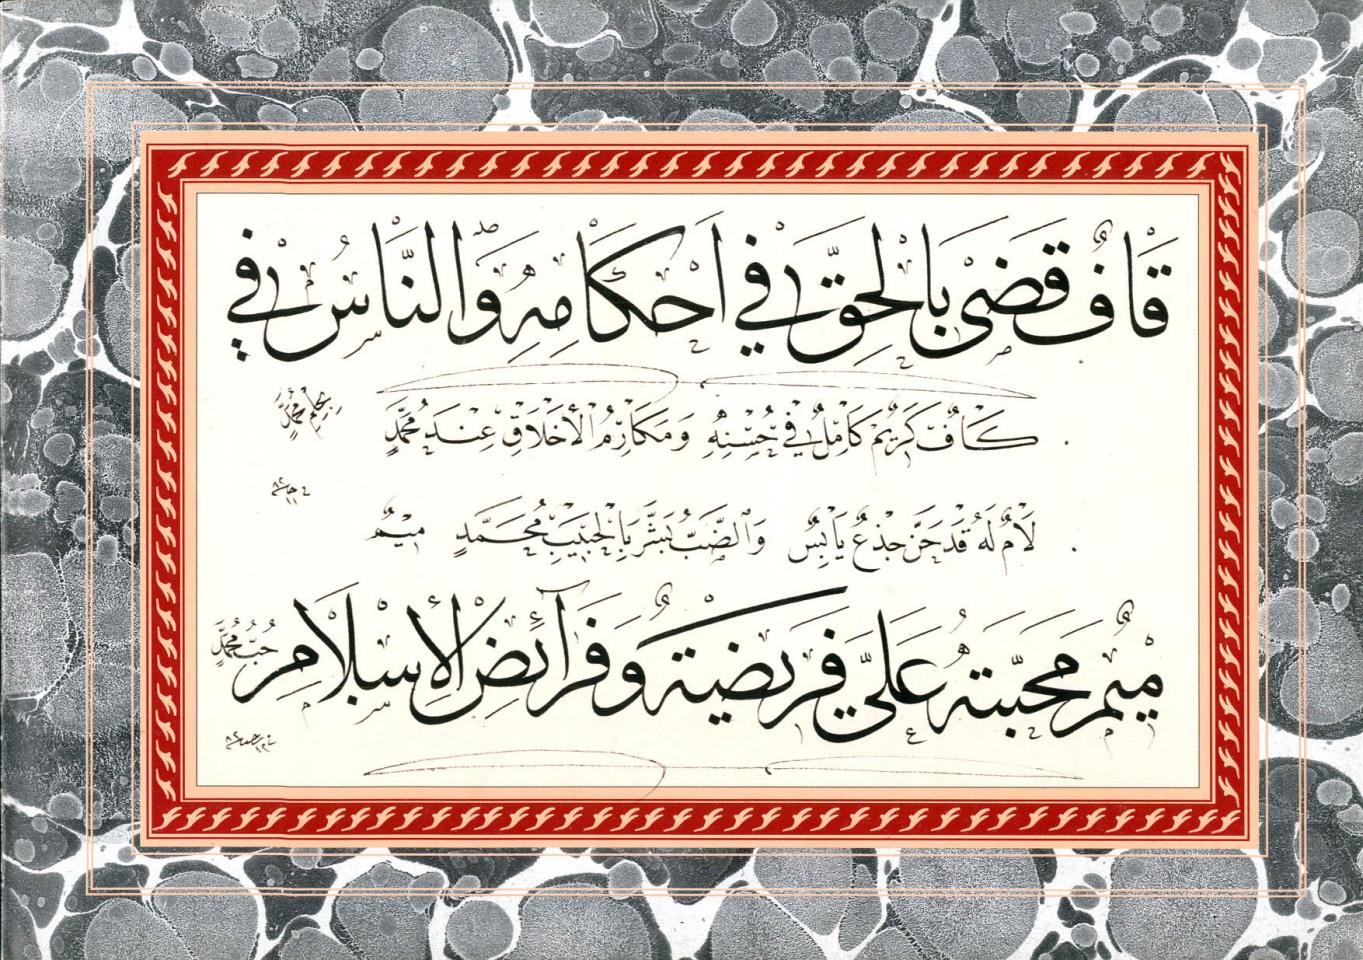 قَافٌ قَضَى بِالْحَقِّ فِي أَحْكَامِهِ وَالنَّاسُ فِي
كَافٌ كَرِيمٌ كَامِلٌ فِي حُسْنِهِ وَمَكَارِمُ الْأَخْلَاقِ عِنْدَ مُحَمَّدٍ
لَامٌ لَهُ قَدْ حَنَّ جِذْعٌ يَابِسٌ وَالضَّبُّ بَشَّرَ بِالْحَبِيبِ مُحَمَّدٍ مِيمٌ
مِيمٌ مَحَبَّتُهُ عَلَيَّ فَرِيضَةٌ وَفَرَائِضُ الْإِسْلَامِ
حُبُّ مُحَمَّدٍ